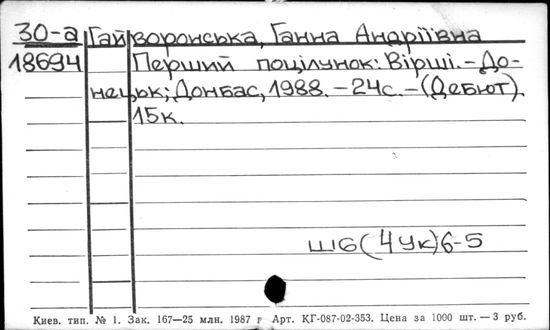 30-а Гайворонська, Ганна Андріївна
18694 Перший поцілунок: Вірші. – До-
нецьк; Донбас, 1988. – 24с. – (Дебют).
15к.
Ш6(4Ук)6-5
Киев. тип. № 1. Зак. 167—25 млн. 1987 г Арт. КГ-087-02-353. Цена за 1000 шт. — 3 руб.